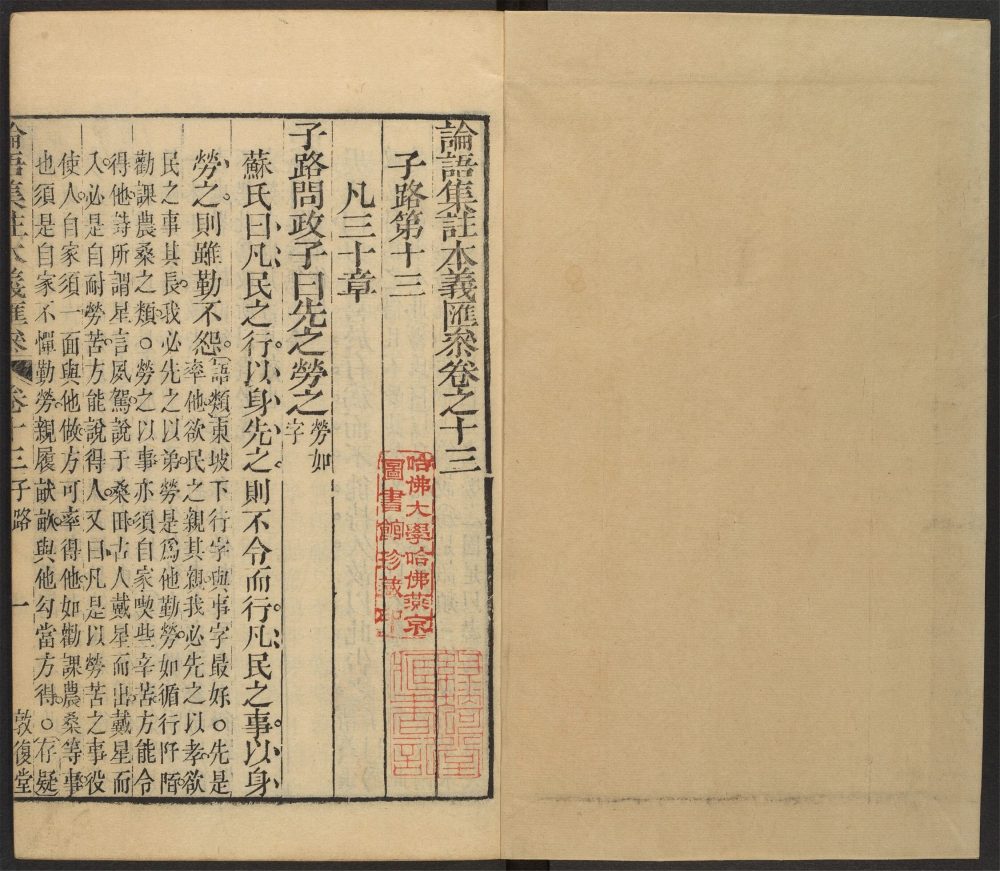 論語集註本義匯叅卷之十三
子路第十三
凡三十章
子路問政子曰先之勞之勞如字
蘇氏曰凡民之行以身先之則不令而行凡民之事以身
勞之則雖勤不怨語類東坡下行字與事字最好○先是
率他欲民之親其親我必先之以孝欲
民之事其長我必先之以弟勞是為他勤勞如循行阡陌
勸課農桑之類○勞之以事亦須自家喫些辛苦方能令
得他詩所謂星言夙駕說于桑田古人戴星而出戴星而
入必是自耐勞苦方能說得人又曰凡是以勞苦之事役
使人自家須一面與他做方可率得他如勸課農桑等事
也須是自家不憚勤勞親履畎畝與他勾當方得○存疑
論語集註本義匯叅 卷十三 子路 一 敦復堂
哈佛大學哈佛燕京
圖書館珍藏印